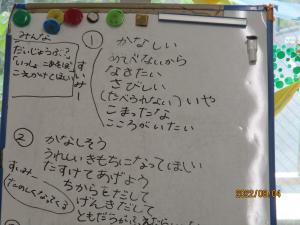 みんな
だいじょうぶ？
いっしょにあそぼ
こえかけてほしい
すいみー
①
かなしい
めでべないから
なきたい
さびしい
(たべられない)いや
こまったな
こころがいたい
②
かなしそう
うれしいきもちになってほしい
たすけてあげよう
ちからをだして
げんきだして
すいみー
たのしくなってくる
2022/06/04